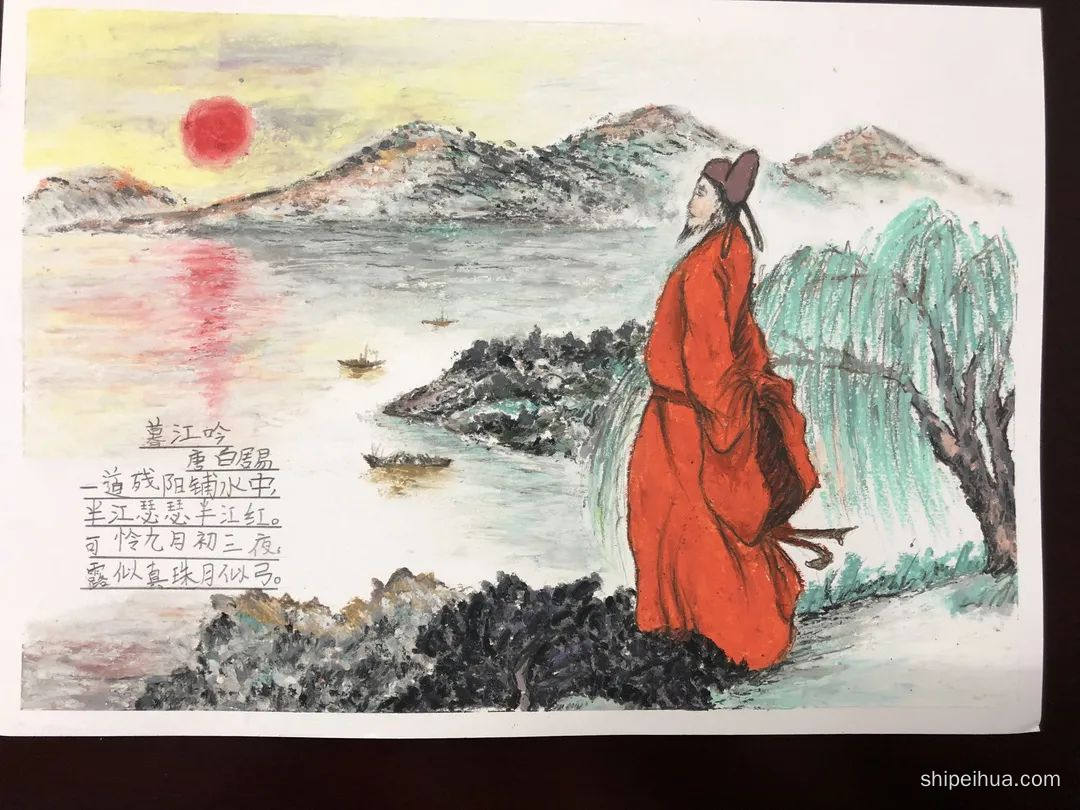 暮江吟
唐 白居易
一道残阳铺水中,
半江瑟瑟半江红。
可怜九月初三夜,
露似真珠月似弓。
shipeihua.com